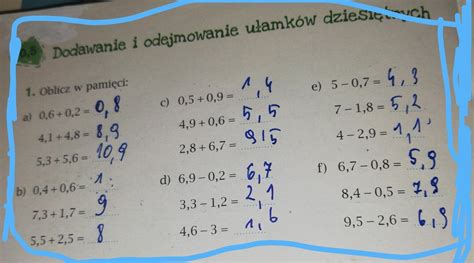 5.6 Dodawanie i odejmowanie ułamków dziesiętnych
1. Oblicz w pamięci:
a) 0,6 + 0,2 = 0,8
4,1 + 4,8 = 8,9
5,3 + 5,6 = 10,9
b) 0,4 + 0,6 = 1
7,3 + 1,7 = 9
5,5 + 2,5 = 8
c) 0,5 + 0,9 = 1,4
4,9 + 0,6 = 5,5
2,8 + 6,7 = 9,5
d) 6,9 – 0,2 = 6,7
3,3 – 1,2 = 2,1
4,6 – 3 = 1,6
e) 5 – 0,7 = 4,3
7 – 1,8 = 5,2
4 – 2,9 = 1,1
f) 6,7 – 0,8 = 5,9
8,4 – 0,5 = 7,9
9,5 – 2,6 = 6,9